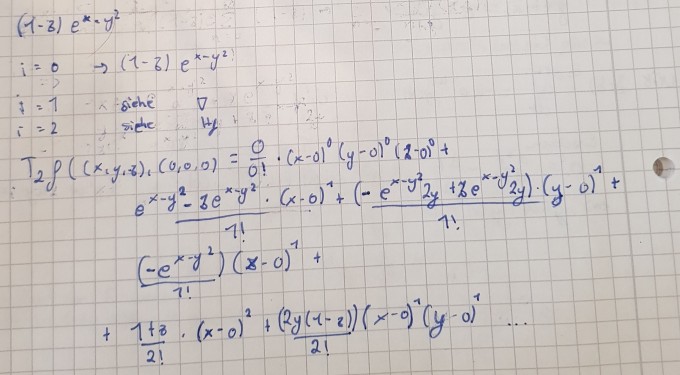 (1-z) e^x-y²
i = 0 → (1-z) e^x-y²
i = 1 siehe ∇
i = 2 siehe Hf
T₂f((x,y,z),(0,0,0) = 0/0! · (x-0)⁰ (y-0)⁰ (z-0)⁰ +
(e^x-y² - z e^x-y²)/1! · (x-0)¹ + (-e^x-y² 2y + z e^x-y² 2y)/1! · (y-0)¹ +
(-e^x-y²)/1! (z-0)¹ +
+ (1+z)/2! · (x-0)² + (2y(1-z))/2! (x-0)¹ (y-0)¹ ...